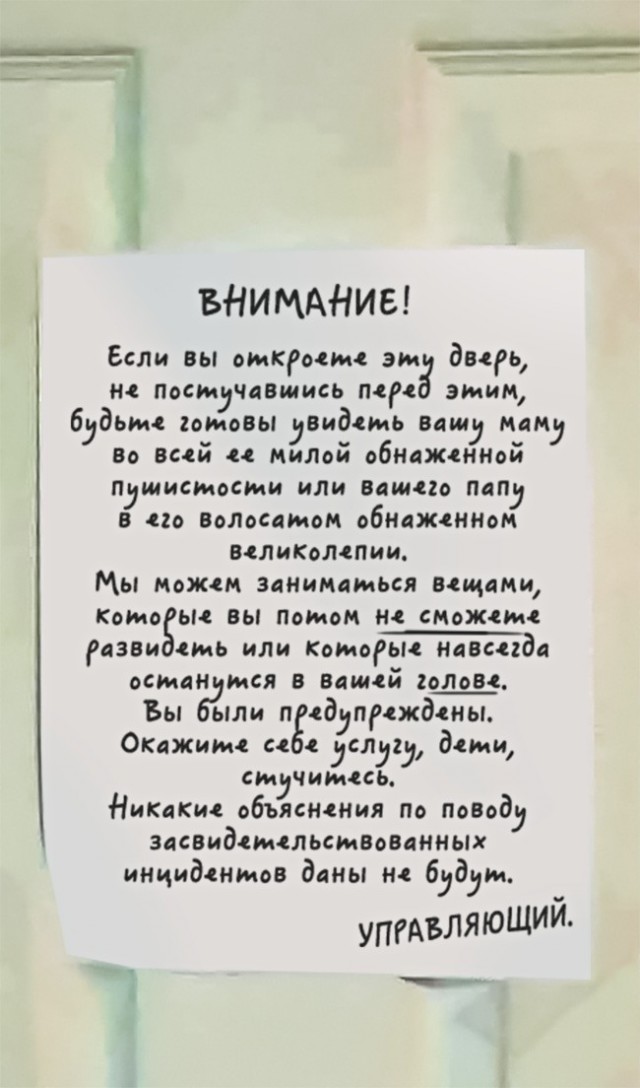 ВНИМАНИЕ!
Если вы откроете эту дверь,
не постучавшись перед этим,
будьте готовы увидеть вашу маму
во всей ее милой обнаженной
пушистости или вашего папу
в его волосатом обнаженном
великолепии.
Мы можем заниматься вещами,
которые вы потом не сможете
развидеть или которые навсегда
останутся в вашей голове.
Вы были предупреждены.
Окажите себе услугу, дети,
стучитесь.
Никакие объяснения по поводу
засвидетельствованных
инцидентов даны не будут.
УПРАВЛЯЮЩИЙ.